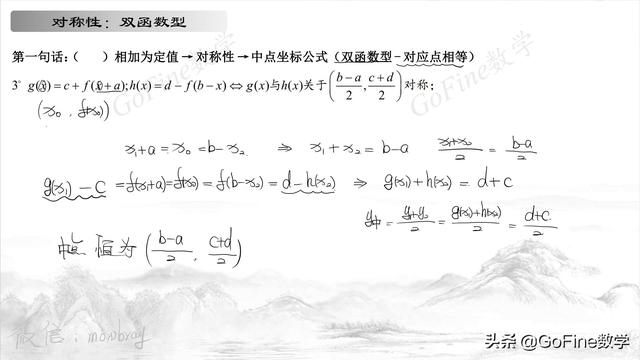 对称性：双函数型
第一句话：（　）相加为定值→对称性→中点坐标公式（双函数型-对应点相等）
3° g(x)=c+f(x+a);h(x)=d-f(b-x)⇔g(x)与h(x)关于((b-a)/2,(c+d)/2)对称；
(x₀, f(x₀))
x₁+a=x₀=b-x₂ ⇒ x₁+x₂=b-a (x₁+x₂)/2=(b-a)/2
g(x₁)-c=f(x₁+a)=f(x₀)=f(b-x₂)=d-h(x₂) ⇒ g(x₁)+h(x₂)=d+c
y中=(y₁+y₂)/2=(g(x₁)+h(x₂))/2=(d+c)/2
恒为((b-a)/2, (c+d)/2)
GoFine数学
GoFine数学
微信：monbray
头条 @GoFine数学